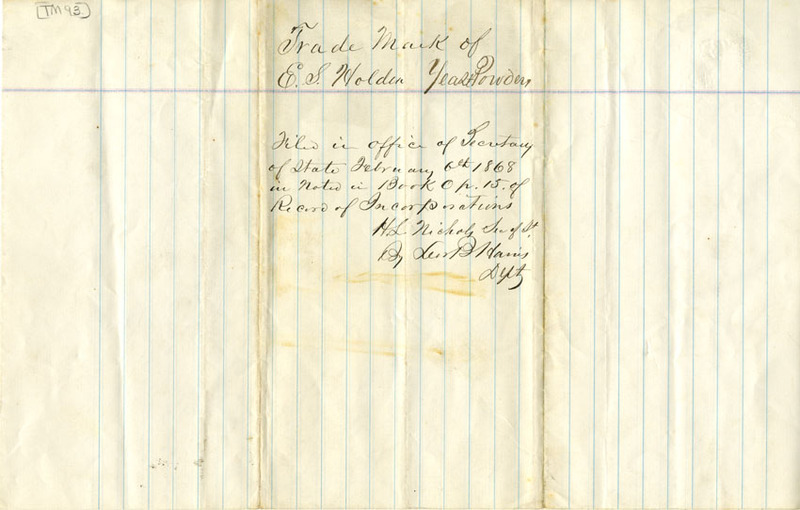 [TM93]
Trade Mark of
E. S. Holden Yeast Powders
Filed in office of Secretary
of State February 6th 1868
in Noted in Book O p. 15. of
Record of Incorporations
H L Nichols Sec of St.
By Lew B Harris
Dpty